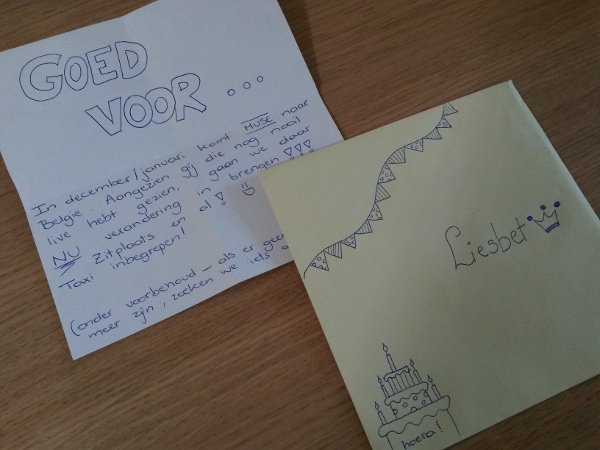 GOED
VOOR ...
In december/januari komt MUSE naar
België. Aangezien gij die nog nooit
live hebt gezien, gaan we daar
NU verandering in brengen !!!
Zitplaats en al!
Taxi inbegrepen!
(onder voorbehoud – als er
meer zijn, zoeken we iets
Liesbet
hoera!